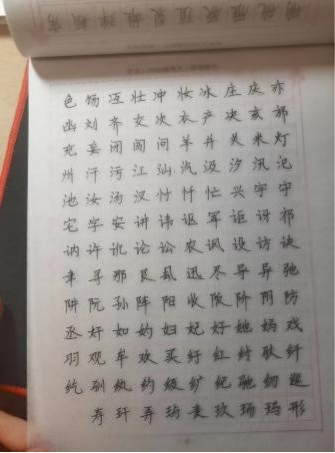 色 饧 冱 壮 冲 妆 冰 庄 庆 亦
刘 齐 交 次 衣 产 决 亥 邡
充 妄 闭 问 闯 羊 并 关 米 灯
州 汗 污 江 汕 汔 汲 汐 汛 汜
池 汝 汤 汊 忖 忏 忙 兴 宇 守
宅 字 安 讲 讳 讴 军 讵 讶 祁
讷 许 讹 论 讼 农 讽 设 访 诀
聿 寻 那 艮 迅 尽 导 异 弛
阱 阮 孙 阵 阳 收 阪 阶 阴 防
丞 奸 如 妁 妇 妃 好 她 妈 戏
羽 观 牟 欢 买 纡 红 纣 驮 纤
纥 驯 约 级 纩 纪 驰 纫 巡
寿 玕 弄 麦 玖 玚 玛 形